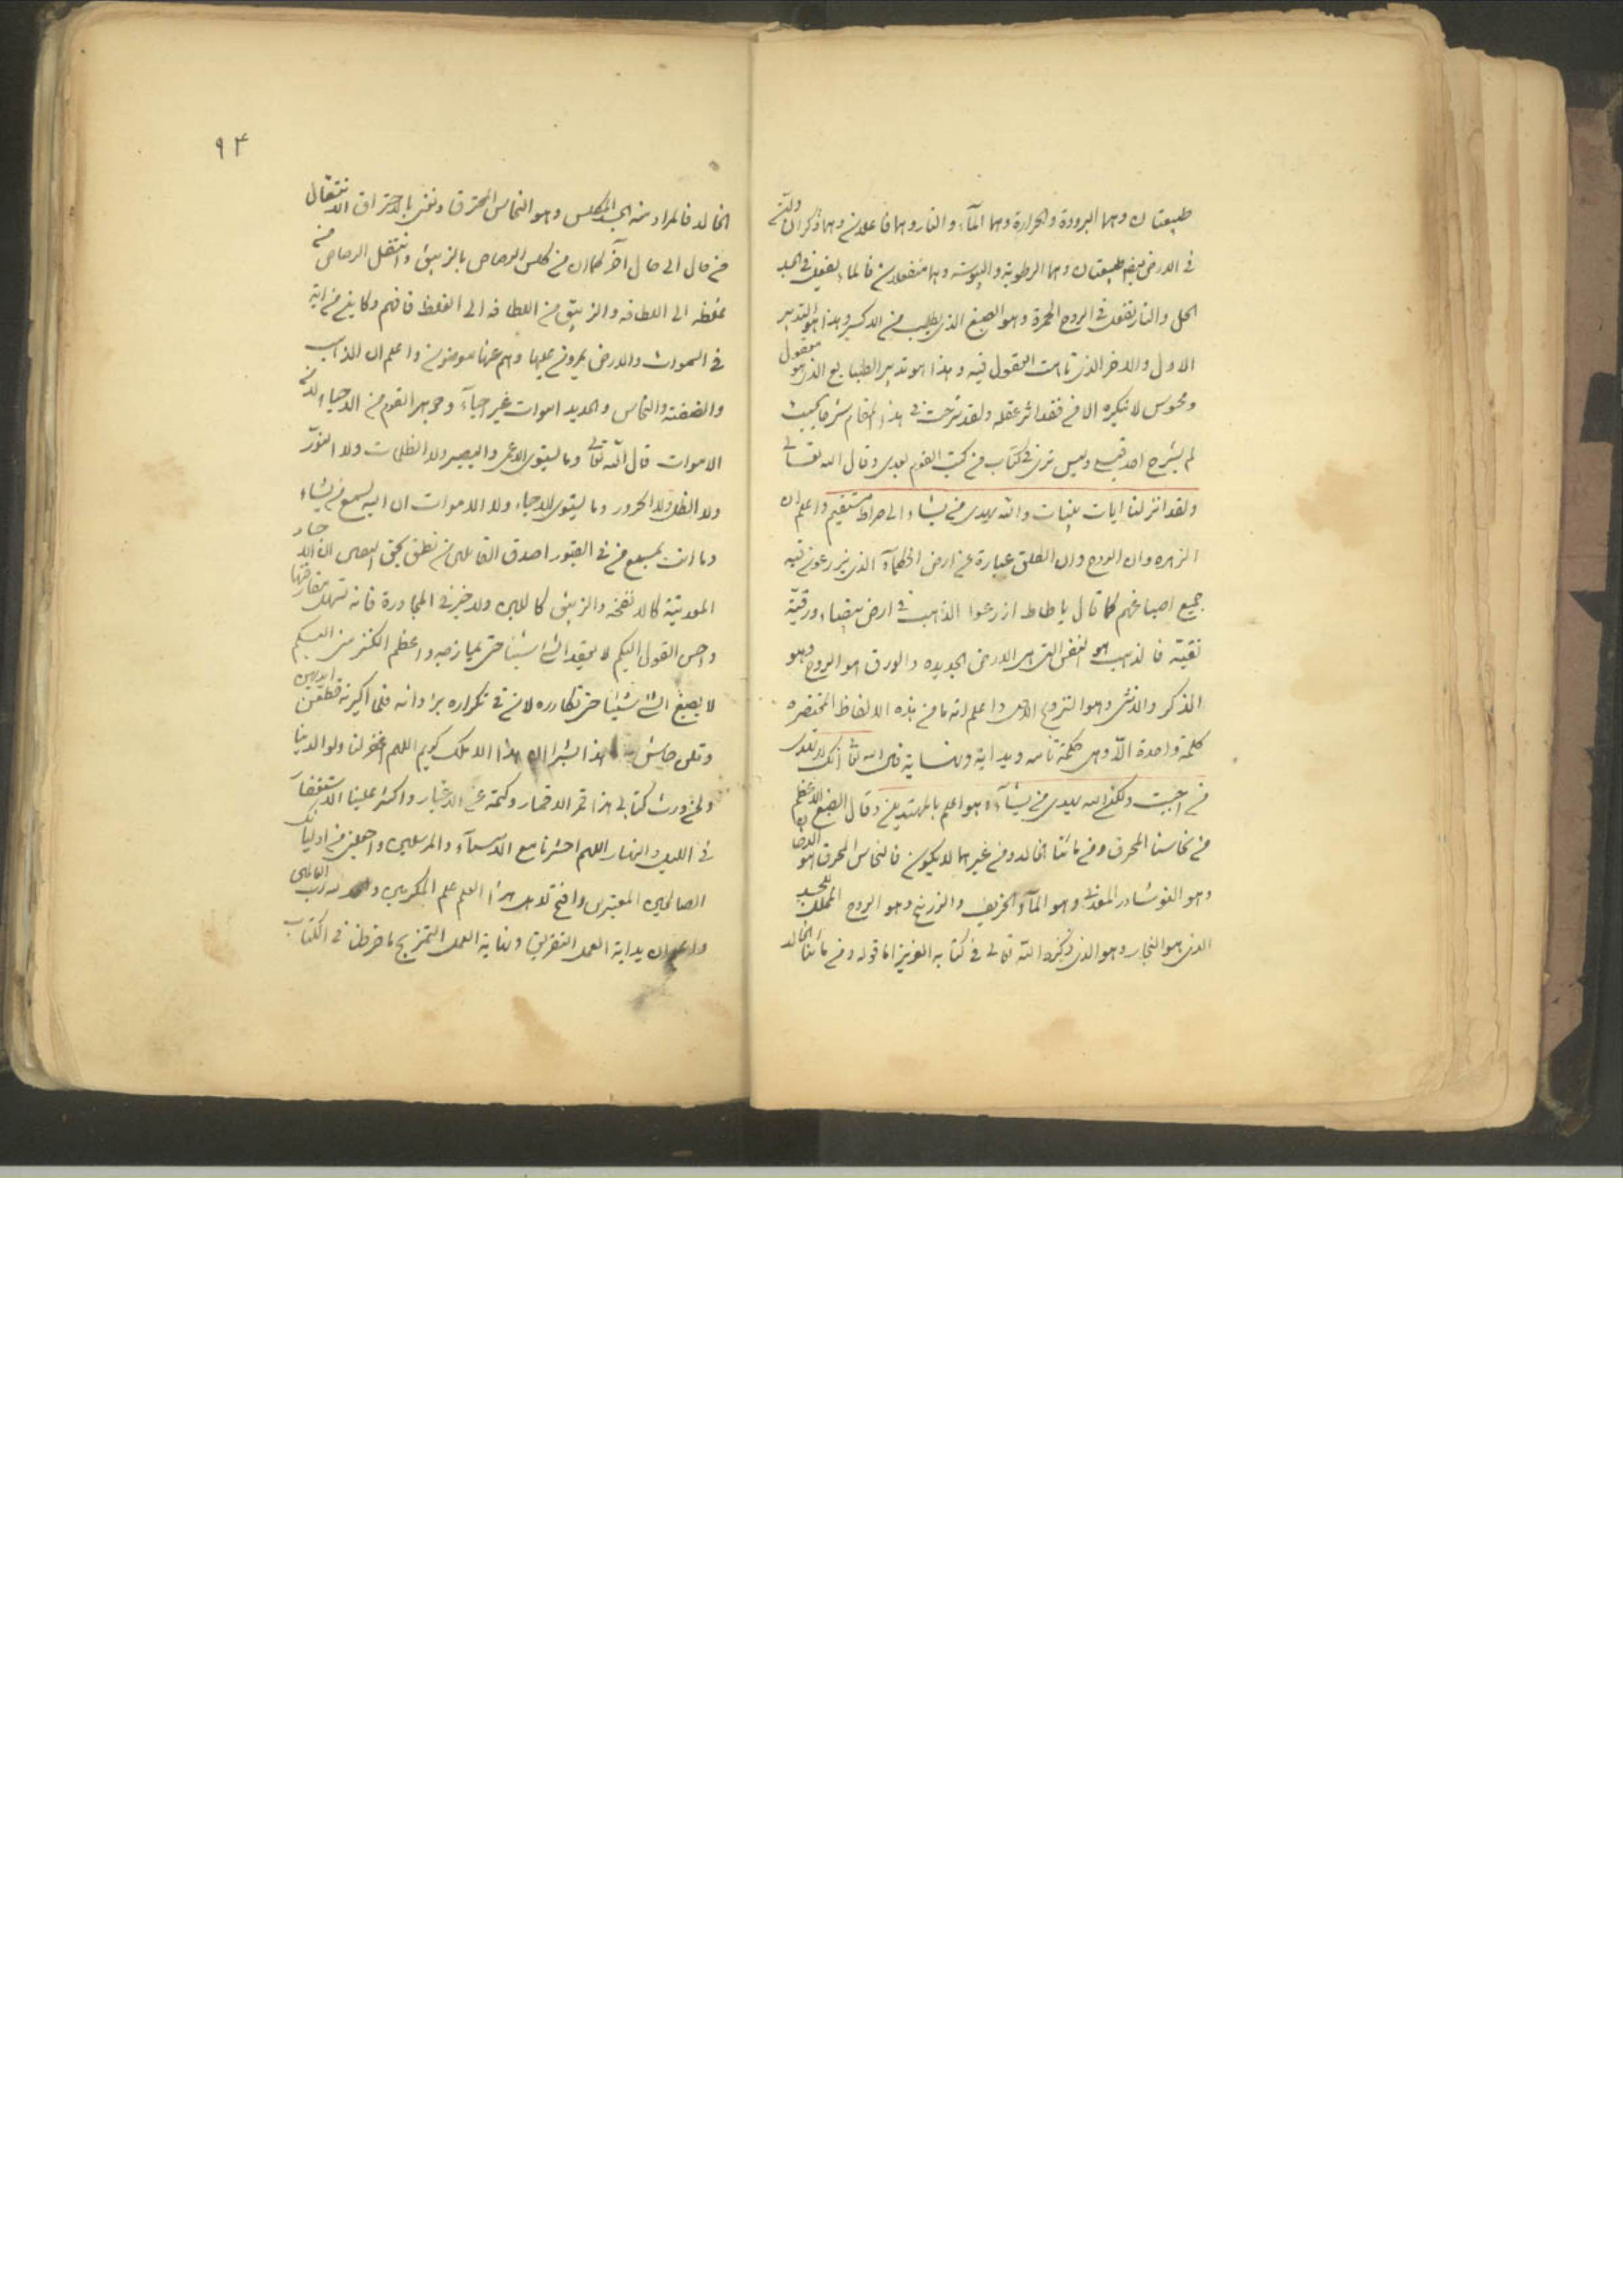 طبيعتان وهما البرودة والحرارة وهما المآء والنار وهما فاعلان وهما ذكران والتى
فى الارض ايضا طبيعتان وهما الرطوبة واليبوسة وهما منفعلان فالماء يفعل فى الجسد
الحل والنار تفعل فى الروح الحمرة وهو الصبغ الذى يطلب من الاكسير وهذا هو التدبير
الاول والاخر الذى تاهت العقول فيه وهذا هو تدبير الطبايع الذى هو معقول
ومحسوس لا ينكره الا من فقد اثر عقله ولقد شرحت فى هذا المقام شرحا بحيث
لم يشرح احد قبلى وليس ترى فى كتاب من كتب القوم بعدى وقال الله تعالى
ولقد انزلنا ايات بينات والله يهدى من يشاء الى صراط مستقيم واعلم ان
الزهره وان الروح وان الطلق عبارة عن ارض الحكمآء الذى يزرعون فيه
جميع اصباغهم كما قال ياطاط ازرعوا الذهب فى ارض بيضاء ورقية
نقية فالذهب هو النفس التى هى الارض الجديده والورق هو الروح وهو
الذكر والانثى وهو التزويج الاول واعلم انه ما من هذه الالفاظ المختصره
كلمة واحدة الا وهى حكمة تامه وبداية ونهاية قال الله تعا انك لا تهدى
من احببت ولكن الله يهدى من يشآء وهو اعلم بالمهتدين وقال الصبغ الاعظم
من نحاسنا المحرق ومن مائنا الخالد ومن غيرهما لا يكون فالنحاس المحرق هو
وهو النوشادر المعدنى وهو المآء الخريف والزرنيخ وهو الروح المملك للجسد
الذى هو النجار وهو الذى ذكره الله تعالى فى كتابه العزيز اما قوله ومن مائنا الخالد
٩٤
الخالد فالمراد منه الجسد المكلس وهو النحاس المحرق ونعنى بالاحتراق الانتقال
من حال الى حال آخر كما ان من كلس الرصاص بالزيبق وانتقل الرصاص من
غلظه الى اللطافه والزيبق من اللطافه الى الغلظ فافهم وكاين من اية
فى السموات والارض يمرون عليها وهم عنها معرضون واعلم ان الذهب
والفضة والنحاس والحديد اموات غير احيآء وجوهر القوم من الاحياء لا من
الاموات قال الله تعالى وما يستوى الاعمى والبصير ولا الظلمات ولا النور
ولا الظل ولا الحرور وما يستوى الاحياء ولا الاموات ان الله يسمع من يشاء
وما انت بمسمع من فى القبور اصدق القائلين من نطق بحق اليقين ان الاجساد
الموديتة كالانفخه والزيبق كاللبن ولا خير فى المجاورة فانه تهلك مفارقتها
واحسن القول اليكم لا يعقد الشئ شيئا حتى يمازجه واعظم الكنز منى اليكم
لا يصبغ الشئ شيئا حتى تكارره لان فى تكراره يزادانه فلما اكبرنه قطعن ايديهن
وقلن حاش لله ما هذا بشرا ان هذا الا ملك كريم اللهم اغفر لنا ولوالدينا
ولمن ورث كتابى هذا قمر الاقمار وكتمه عن الاغيار واكثر علينا الاستغفار
فى الليل والنهار اللهم احشرنا مع الانبيآء والمرسلين واجعلنى من اوليائك
الصالحين المعتبرين وافتح لاهل هذا العلم علم المكرمين والحمد لله رب العالمين
واعلم ان بداية العمل التفريق ونهاية العمل التمزيج ما فرطنا فى الكتاب